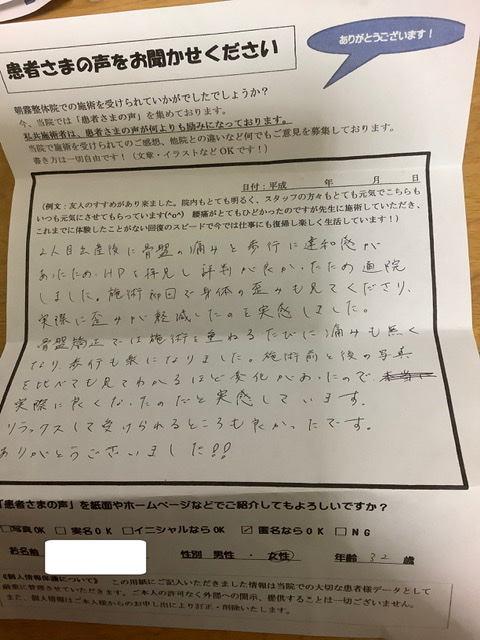 患者さまの声をお聞かせください
ありがとうございます！
朝霧整体院での施術を受けられていかがでしたでしょうか？
今、当院では「患者さまの声」を集めております。
私共施術者は、患者さまの声が何よりも励みになっております。
当院で施術を受けられてのご感想、他院との違いなど何でもご意見を募集しております。
書き方は一切自由です！（文章・イラストなどOKです！）
日付：平成　　年　　月　　日
（例文：友人のすすめがあり来ました。院内もとても明るく、スタッフの方々もとても元気でこちらも
いつも元気にさせてもらっています(^o^)　腰痛がとてもひどかったのですが先生に施術していただき、
これまでに体験したことがない回復のスピードで今では仕事にも復帰し楽しく生活しています！）
2人目出産後に骨盤の痛みと歩行に違和感が
あったため、HPを拝見し評判が良かったため通院
しました。施術初回で身体の歪みも見てくださり、
実際に歪みが軽減したのを実感しました。
骨盤矯正では施術を重ねるたびに痛みも無く
なり、歩行も楽になりました。施術前と後の写真
を比べても見てわかるほど変化があったので
実際に良くなったのだと実感しています。
リラックスして受けられるところも良かったです。
ありがとうございました!!
「患者さまの声」を紙面やホームページなどでご紹介してもよろしいですか？
□写真OK　□実名OK　□イニシャルならOK　☑匿名ならOK　□NG
お名前　　性別　男性　・　女性）　年齢　32　歳
《個人情報保護について》　この用紙にご記入いただきました情報は当院での大切な患者様データとして
厳重に管理させていただきます。ご本人の許可なく外部への開示、提供することは一切ございません。
また、個人情報はご本人様からのお申し出により訂正・削除いたします。